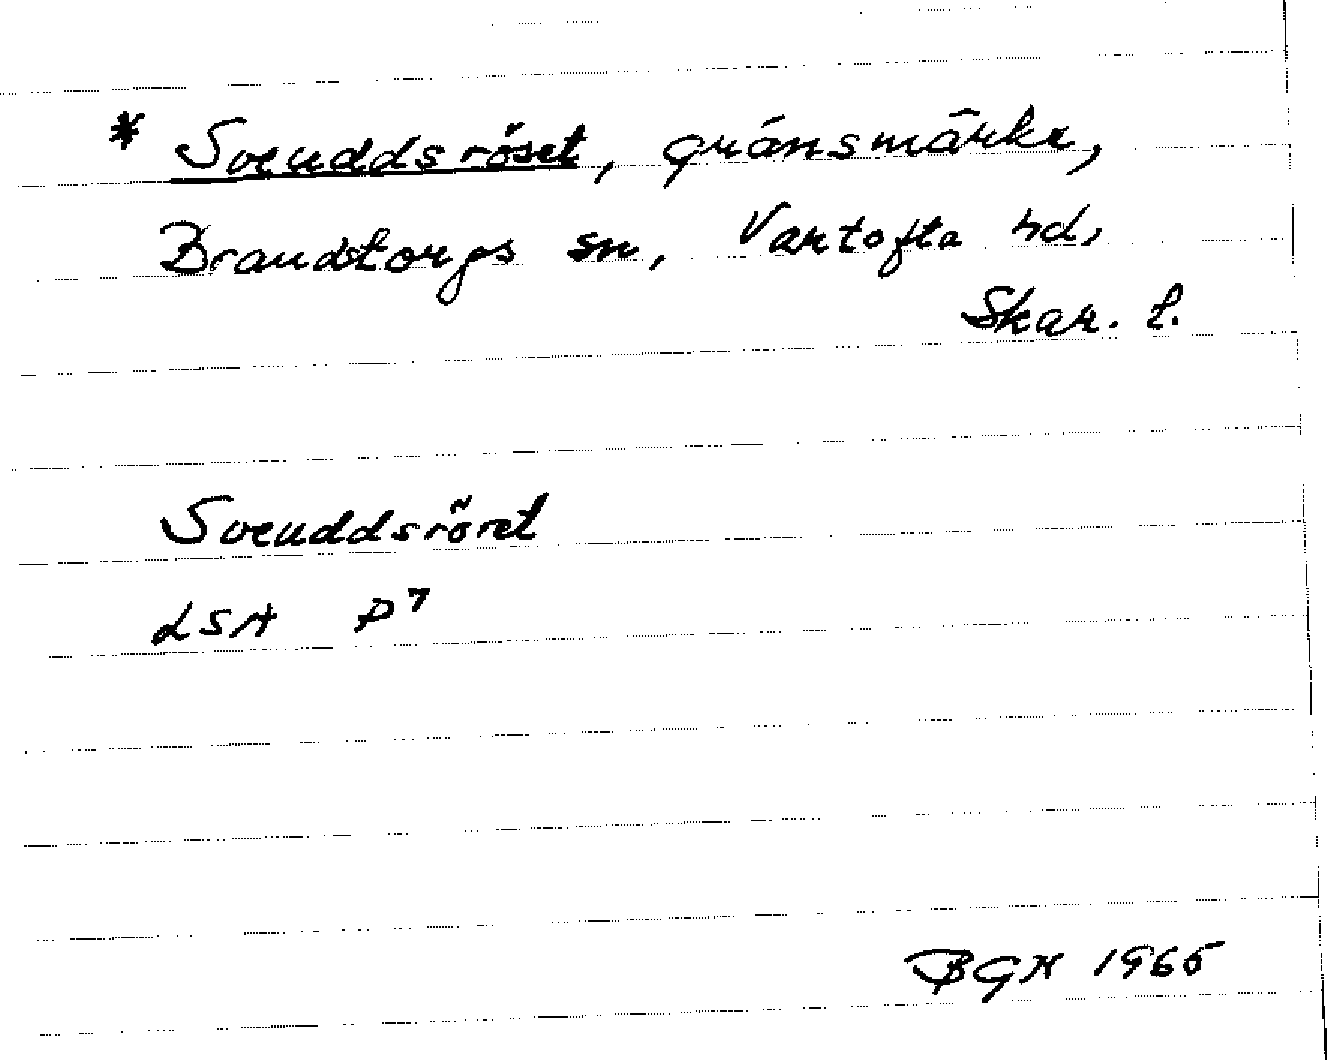 * Sveuddsröset, gränsmärke,
Brandtorps sn, Vartofta hd,
Skar. l.
Sveuddsröret
LSA P7
BGN 1965